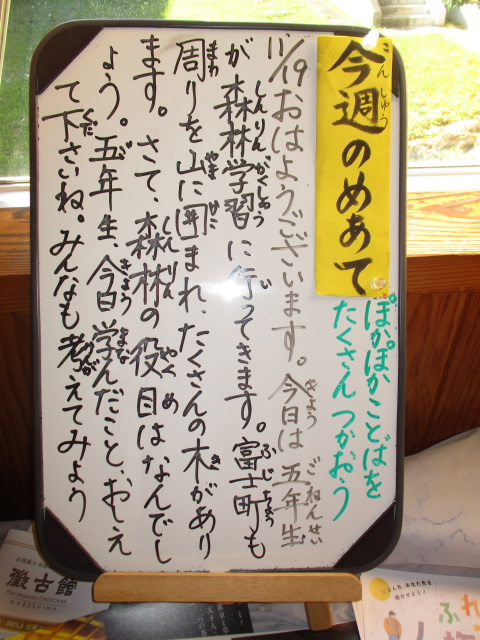 今週のめあて
こんしゅう
ぽかぽかことばを
たくさんつかおう
11/19 おはようございます。今日は五年生
きょう ごねんせい
が森林学習に行ってきます。富士町も
しんりんがくしゅう い ふじちょう
周りを山に囲まれ、たくさんの木があり
まわ やま かこ き
ます。さて、森林の役目はなんでし
しんりん やくめ
ょう。五年生、今日学んだこと、おしえ
きょう まな
て下さいね。みんなも考えてみよう
くだ かんが
徴古館